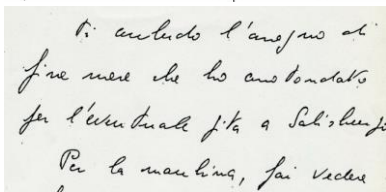 Ti accludo l'assegno di
fine mese che ho arrotondato
per l'eventuale gita a Salisbury
Per la macchina, fai vedere